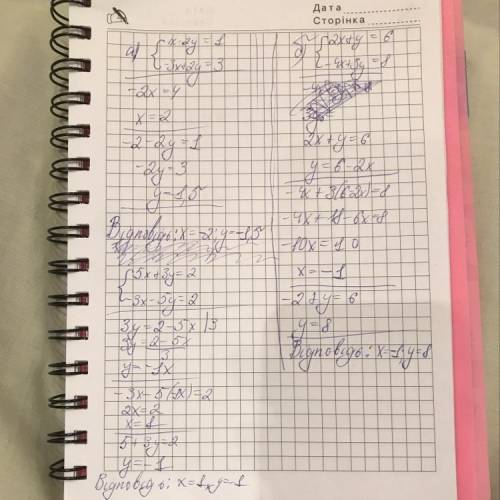 Дата
Сторінка
а) { x-2y=1
-3x+2y=3
-2x=4
x=2
-2-2y=1
-2y=3
y=1,5
Відповідь: x=-2; y=-1,5
{ 5x+3y=2
-3x-5y=2
3y=2-5x |3
3y=2-5x
3
y=-1x
-3x-5(-1x)=2
2x=2
x=1
5+3y=2
y=-1
Відповідь: x=1, y=-1
б) { 2x+y=6
-4x+3y=8
2x+y=6
y=6-2x
-4x+3(6-2x)=8
-4x+18-6x=8
-10x=10
x=-1
-2+y=6
y=8
Відповідь: x=-1; y=8